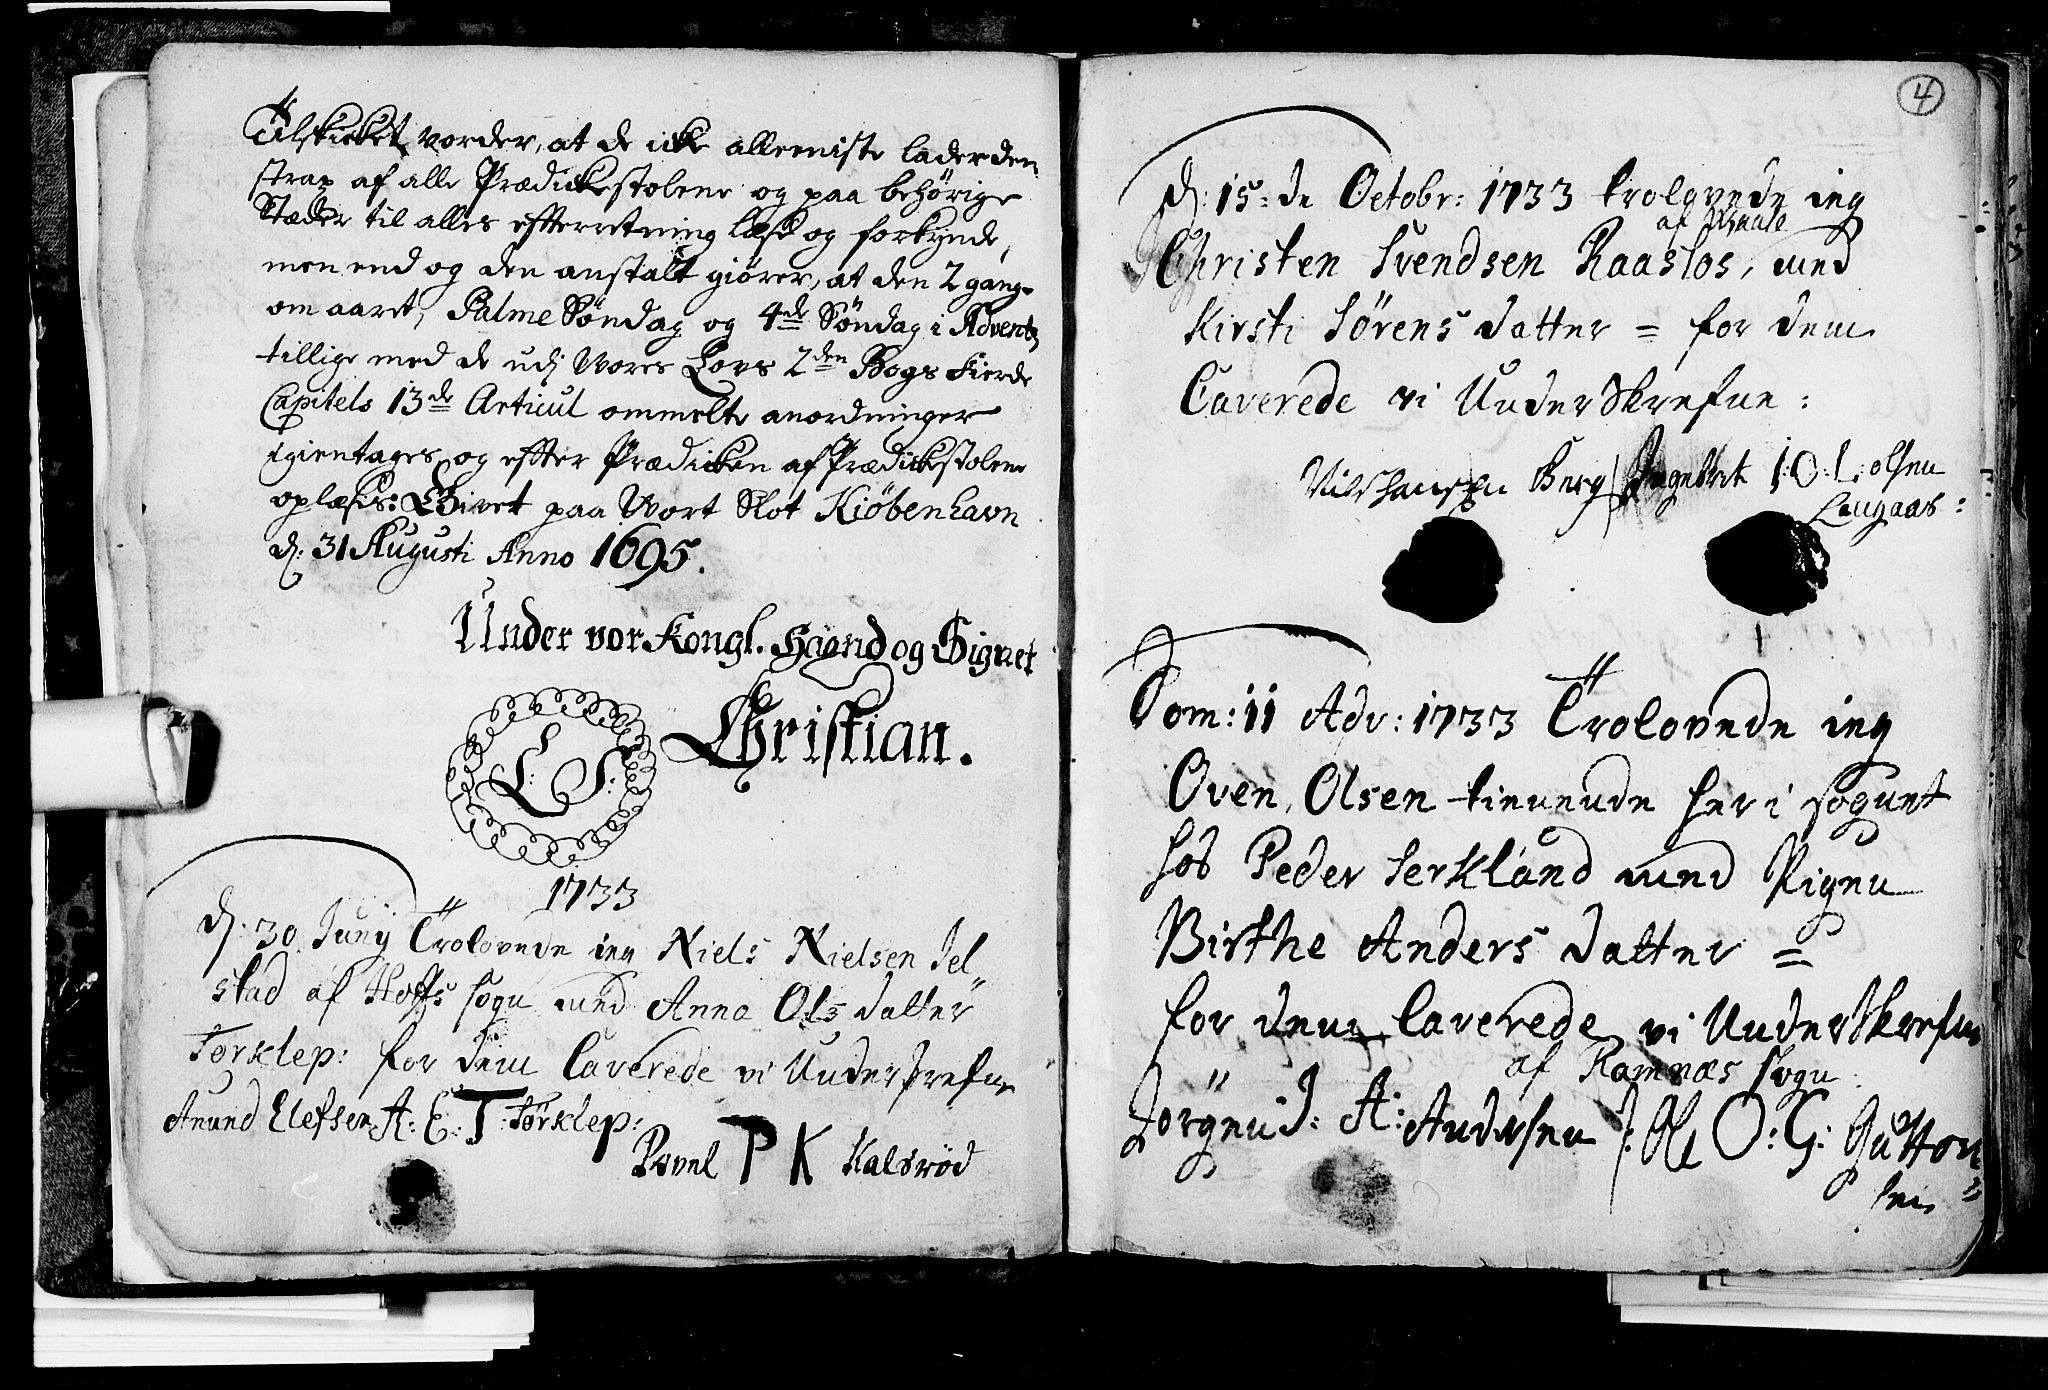 tilskicket vorder, at de icke alleeniste lader den
strax af alle Prædickestolene og paa behörige
Stæder til alles efterretning læse og forkynde,
men end og den anstalt giører, at den 2 gange
om aaret, Palme Söndag og 4de Söndag i Adventz
tillige med de udj Wores Lovs 2den Bogs Fierde
Capitels 13de Articul ommelte anordninger
igientages, og efter Prædicken af Prædickestolene
oplæses. Givet paa Wort Slot Kiöbenhavn
d: 31 Augusti Anno 1695.
Under vor Kongl. Haand og Signet
Christian.
L: S:
1733
d: 30 Junij Trolovede ieg Niels Nielsen Jel
stad af Hoffs sogn med Anna Ols datter
Torklep: for dem Caverede vi Underskrefne
Anund Elefsen A: E: T: Törklep:
Povel P K Kalsrød
4
d: 15de Octobr: 1733 trolovede ieg
Christen Svendsen Raaslos, med
Kirsti Sörens datter = for dem
Caverede vi UnderSkrefne:
Nils Hansen Berg Ingebret I:O:L: olsen
Langaas:
Dom: II Adv: 1733 Trolovede ieg
Oven Olsen tienende her i sognet
hos Peder Serkland med Pigen
Birthe Anders datter =
for dem Caverede vi UnderSkrefne
af Ramnæs Sogn
Jörgen J: A: Andersen Ole O: G: Guttor
sen